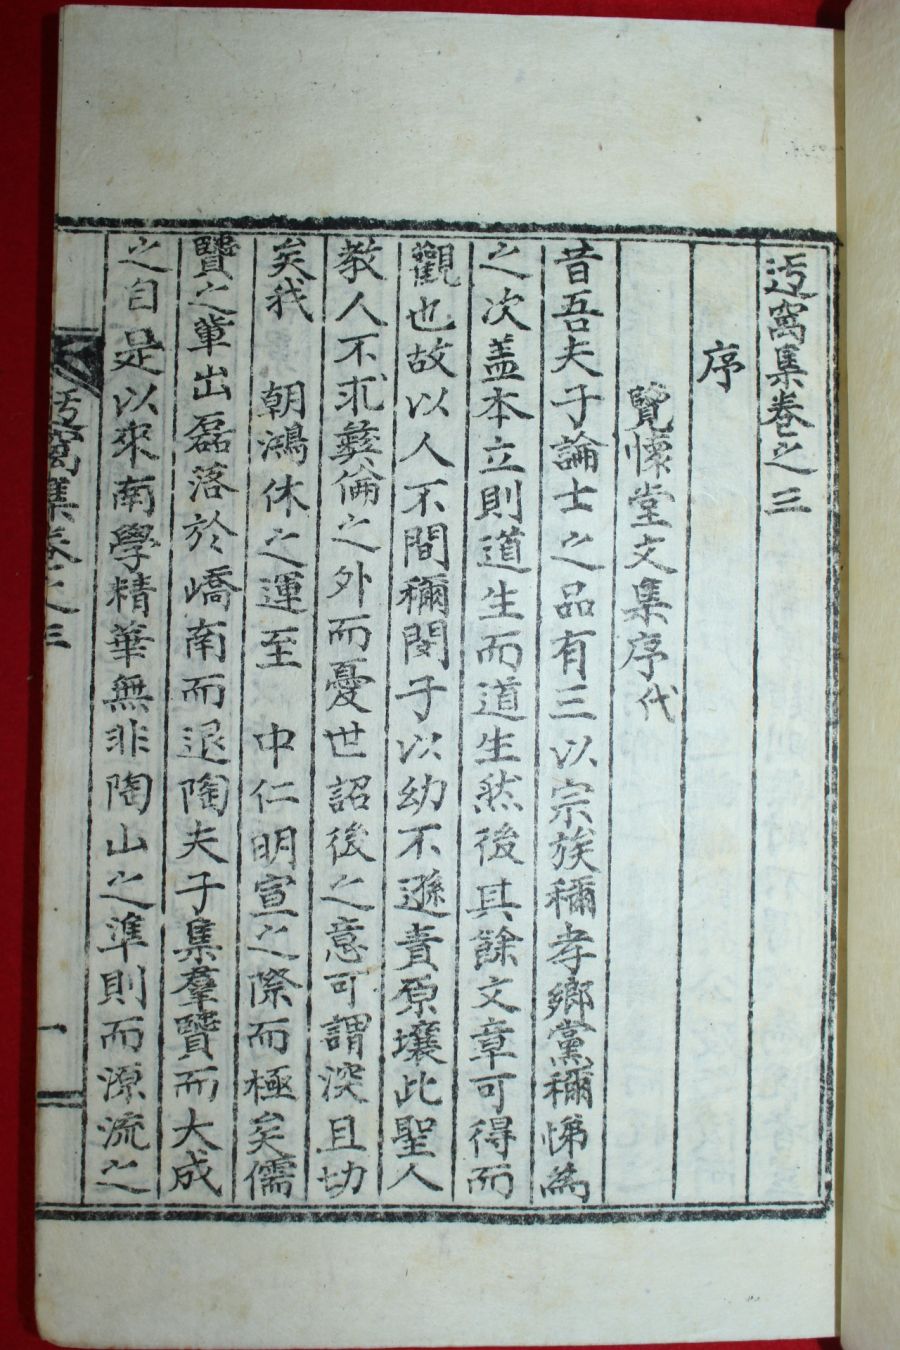 迃窩集卷之三
序
覽懷堂文集序代
昔吾夫子論士之品有三以宗族穪孝鄉黨穪悌為
之次盖本立則道生而道生然後其餘文章可得而
觀也故以人不間穪閔子以幼不遜責原壤此聖人
教人不求彝倫之外而憂世詔後之意可謂深且切
矣我　朝鴻休之運至　中仁明宣之際而極矣儒
賢之軰出磊落於嶠南而退陶夫子集羣賢而大成
之自是以來南學精華無非陶山之準則而源流之
迃窩集卷之三
一